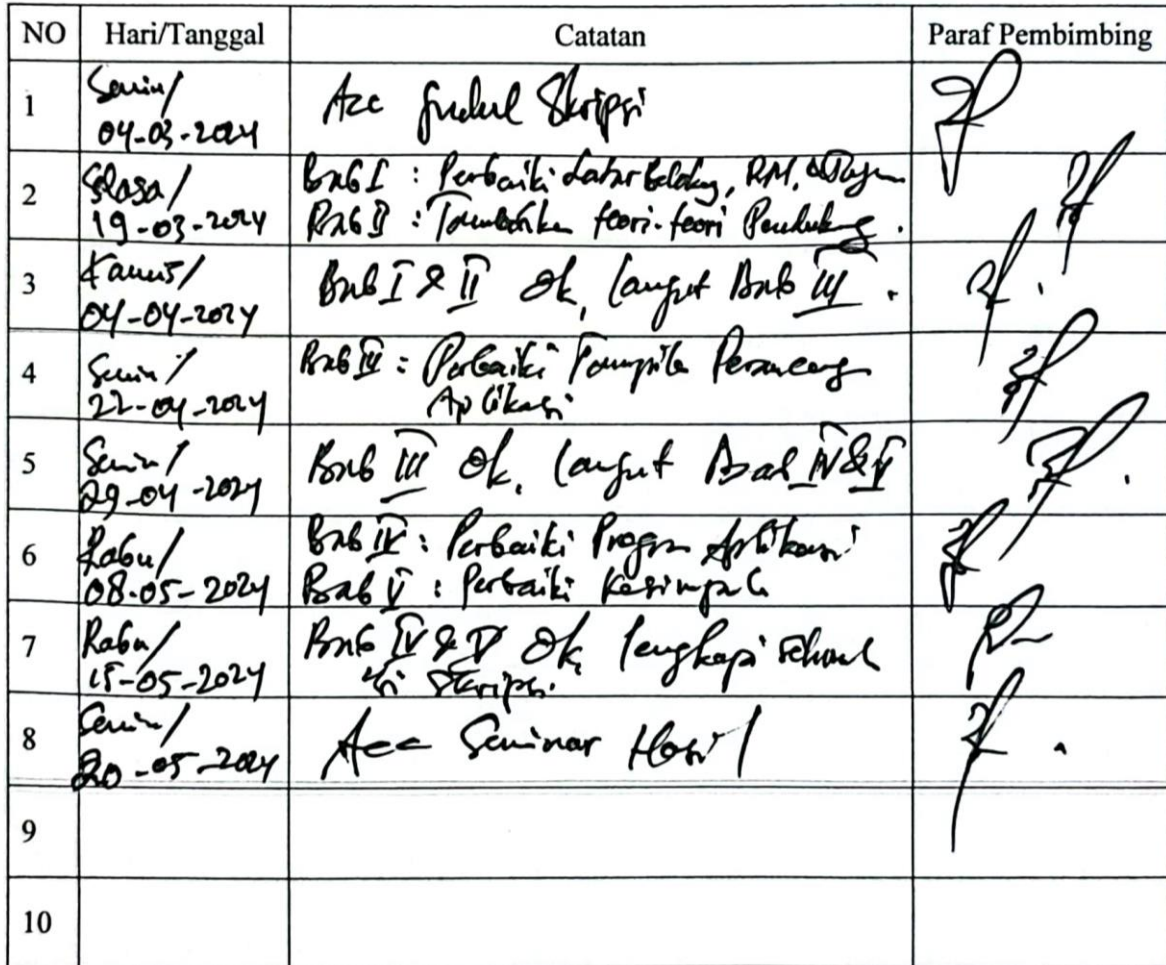 NO Hari/Tanggal Catatan Paraf Pembimbing
1 Senin/ 04-03-2024 Acc Judul Skripsi
2 Selasa/ 19-03-2024 Bab I : Perbaiki Latar Belakang, RM, & Tujuan
Bab II : Tambahkan teori-teori Pendukung.
3 Kamis/ 04-04-2024 Bab I & II Ok, lanjut Bab III.
4 Senin/ 22-04-2024 Bab III : Perbaiki Tampilan Perancang
Aplikasi
5 Senin/ 29-04-2024 Bab III Ok, lanjut Bab IV & V
6 Rabu/ 08-05-2024 Bab IV : Perbaiki Program Aplikasi
Bab V : Perbaiki Kesimpulan
7 Rabu/ 15-05-2024 Bab IV & V Ok, lengkapi
isi Skripsi.
8 Senin/ 20-05-2024 Acc Seminar Hasil
9
10